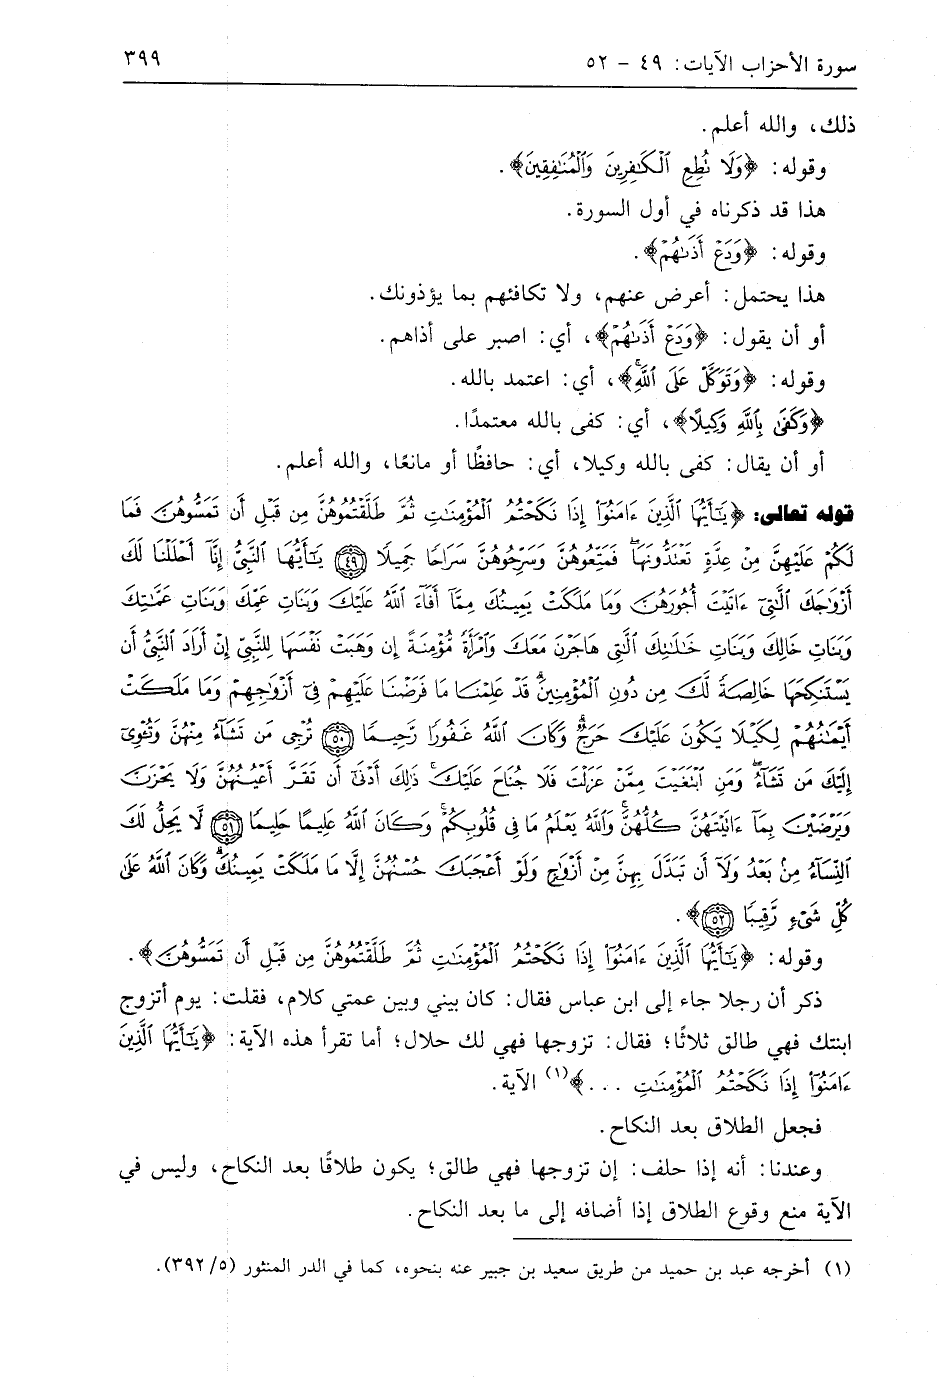 سورة الأحزاب الآيات: ٤٩ - ٥٢ ٣٩٩
ذلك، والله أعلم.
وقوله: ﴿وَلَا تُطِعِ ٱلْكَـٰفِرِينَ وَٱلْمُنَـٰفِقِينَ﴾.
هذا قد ذكرناه في أول السورة.
وقوله: ﴿وَدَعْ أَذَىٰهُمْ﴾.
هذا يحتمل: أعرض عنهم، ولا تكافئهم بما يؤذونك.
أو أن يقول: ﴿وَدَعْ أَذَىٰهُمْ﴾، أي: اصبر على أذاهم.
وقوله: ﴿وَتَوَكَّلْ عَلَى ٱللَّهِۚ﴾، أي: اعتمد بالله.
﴿وَكَفَىٰ بِٱللَّهِ وَكِيلًا﴾، أي: كفى بالله معتمدًا.
أو أن يقال: كفى بالله وكيلا، أي: حافظًا أو مانعًا، والله أعلم.
قوله تعالى: ﴿يَـٰٓأَيُّهَا ٱلَّذِينَ ءَامَنُوٓا۟ إِذَا نَكَحْتُمُ ٱلْمُؤْمِنَـٰتِ ثُمَّ طَلَّقْتُمُوهُنَّ مِن قَبْلِ أَن تَمَسُّوهُنَّ فَمَا
لَكُمْ عَلَيْهِنَّ مِنْ عِدَّةٍ تَعْتَدُّونَهَاۖ فَمَتِّعُوهُنَّ وَسَرِّحُوهُنَّ سَرَاحًا جَمِيلًا ﴿٤٩﴾ يَـٰٓأَيُّهَا ٱلنَّبِىُّ إِنَّآ أَحْلَلْنَا لَكَ
أَزْوَٰجَكَ ٱلَّـٰتِىٓ ءَاتَيْتَ أُجُورَهُنَّ وَمَا مَلَكَتْ يَمِينُكَ مِمَّآ أَفَآءَ ٱللَّهُ عَلَيْكَ وَبَنَاتِ عَمِّكَ وَبَنَاتِ عَمَّـٰتِكَ
وَبَنَاتِ خَالِكَ وَبَنَاتِ خَـٰلَـٰتِكَ ٱلَّـٰتِى هَاجَرْنَ مَعَكَ وَٱمْرَأَةً مُّؤْمِنَةً إِن وَهَبَتْ نَفْسَهَا لِلنَّبِىِّ إِنْ أَرَادَ ٱلنَّبِىُّ أَن
يَسْتَنكِحَهَا خَالِصَةً لَّكَ مِن دُونِ ٱلْمُؤْمِنِينَۗ قَدْ عَلِمْنَا مَا فَرَضْنَا عَلَيْهِمْ فِىٓ أَزْوَٰجِهِمْ وَمَا مَلَكَتْ
أَيْمَـٰنُهُمْ لِكَيْلَا يَكُونَ عَلَيْكَ حَرَجٌۗ وَكَانَ ٱللَّهُ غَفُورًا رَّحِيمًا ﴿٥٠﴾ تُرْجِى مَن تَشَآءُ مِنْهُنَّ وَتُـْٔوِىٓ
إِلَيْكَ مَن تَشَآءُۖ وَمَنِ ٱبْتَغَيْتَ مِمَّنْ عَزَلْتَ فَلَا جُنَاحَ عَلَيْكَۚ ذَٰلِكَ أَدْنَىٰٓ أَن تَقَرَّ أَعْيُنُهُنَّ وَلَا يَحْزَنَّ
وَيَرْضَيْنَ بِمَآ ءَاتَيْتَهُنَّ كُلُّهُنَّۚ وَٱللَّهُ يَعْلَمُ مَا فِى قُلُوبِكُمْۚ وَكَانَ ٱللَّهُ عَلِيمًا حَلِيمًا ﴿٥١﴾ لَّا يَحِلُّ لَكَ
ٱلنِّسَآءُ مِنۢ بَعْدُ وَلَآ أَن تَبَدَّلَ بِهِنَّ مِنْ أَزْوَٰجٍ وَلَوْ أَعْجَبَكَ حُسْنُهُنَّ إِلَّا مَا مَلَكَتْ يَمِينُكَۗ وَكَانَ ٱللَّهُ عَلَىٰ
كُلِّ شَىْءٍ رَّقِيبًا ﴿٥٢﴾﴾.
وقوله: ﴿يَـٰٓأَيُّهَا ٱلَّذِينَ ءَامَنُوٓا۟ إِذَا نَكَحْتُمُ ٱلْمُؤْمِنَـٰتِ ثُمَّ طَلَّقْتُمُوهُنَّ مِن قَبْلِ أَن تَمَسُّوهُنَّ﴾.
ذكر أن رجلا جاء إلى ابن عباس فقال: كان بيني وبين عمتي كلام، فقلت: يوم أتزوج
ابنتك فهي طالق ثلاثًا؛ فقال: تزوجها فهي لك حلال؛ أما تقرأ هذه الآية: ﴿يَـٰٓأَيُّهَا ٱلَّذِينَ
ءَامَنُوٓا۟ إِذَا نَكَحْتُمُ ٱلْمُؤْمِنَـٰتِ ...﴾(١) الآية.
فجعل الطلاق بعد النكاح.
وعندنا: أنه إذا حلف: إن تزوجها فهي طالق؛ يكون طلاقًا بعد النكاح، وليس في
الآية منع وقوع الطلاق إذا أضافه إلى ما بعد النكاح.
(١) أخرجه عبد بن حميد من طريق سعيد بن جبير عنه بنحوه، كما في الدر المنثور (٥/ ٣٩٢).